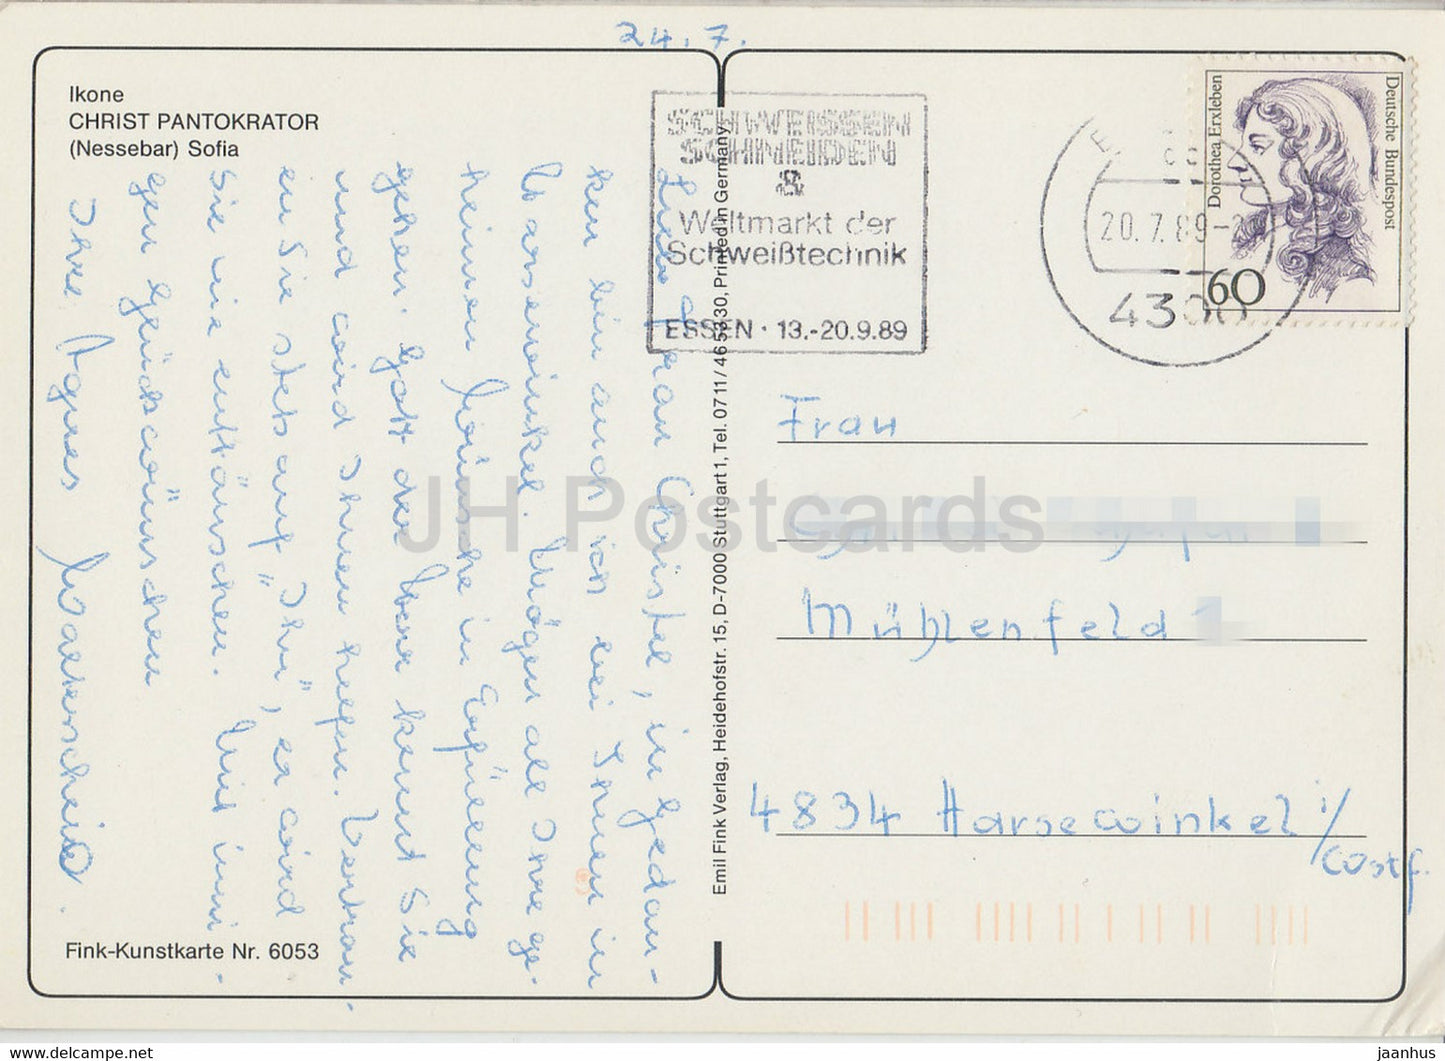 24. 7.
Ikone
CHRIST PANTOKRATOR
(Nessebar) Sofia
Liebe Frau Christel, in Gedan-
ken bin auch ich bei Ihnen in
Harsewinkel. Mögen all Ihre ge-
heimen Wünsche in Erfüllung
gehen. Gott der Herr kennt Sie
und wird Ihnen helfen. Vertrau-
en Sie stets auf "Ihn", er wird
Sie nie enttäuschen. Mit inni-
gen Glückwünschen
Ihre Agnes
Fink-Kunstkarte Nr. 6053
Emil Fink Verlag, Heidehofstr. 15, D-7000 Stuttgart 1, Tel. 0711/46 53 30, Printed in Germany
SCHWEISSEN
SCHNEIDEN
Weltmarkt der
Schweißtechnik
ESSEN · 13.-20.9.89
20.7.89-2
4300
Deutsche Bundespost
Dorothea Erxleben
60
Frau
Mühlenfeld 1
4834 Harsewinkel i/
Ostf.
JH Postcards
www.delcampe.net
jaanhus